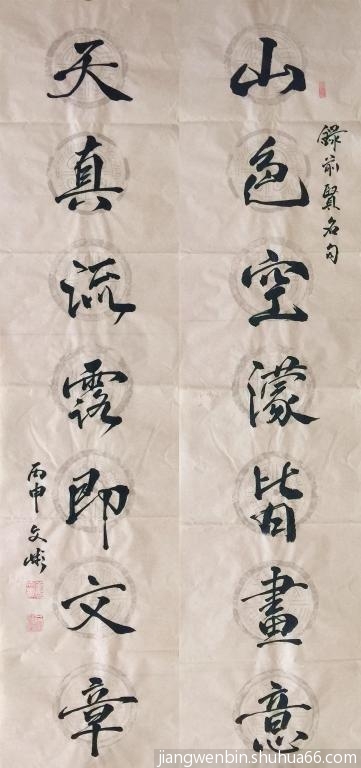 錄前賢名句
山色空濛皆畫意
天真流露即文章
丙申文彬
jiangwenbin.shuhua66.com